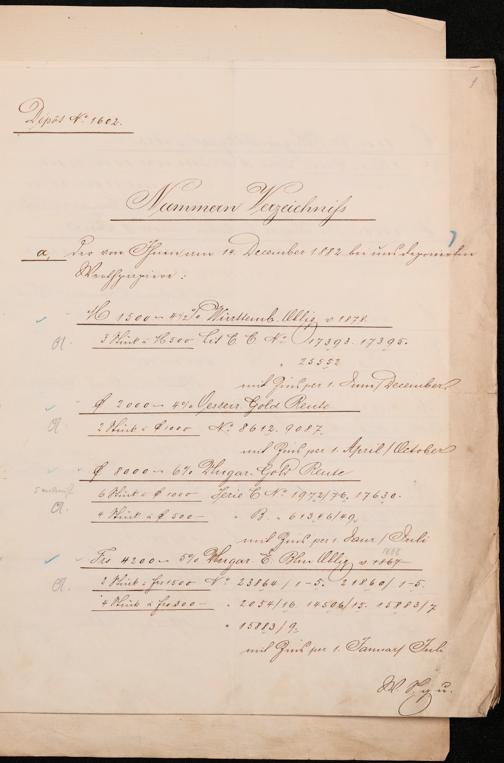 1
Depôt No 1602.
Nummern Verzeichniß
a, Der von Ihnen am 14. December 1882 bei uns deponirten
Werthpapiere:
M 1500 – 4½% Württemb. Oblig. v 1878.
3 Stück à M 500 Lit C C No 17393. 17395.
" 23552
mit Zins per 1. Juni/December
f 2000 – 4% Oesterr. Gold Rente
2 Stück à f 1000 No 8612. 9087.
mit Zins per 1 April/October
f 8000 – 6% Ungar. Gold Rente
6 Stück à f 1000 Serie C No 1972/76. 17630.
4 Stück à f 500 – " B. " 61346/49.
mit Zins per 1. Janr/Juli
Frs 4200 – 5% Ungar. E. Bhn Oblig v 1867
1868
2 Stück à frs 1500 No 23864/1-5. 21860/1-5.
4 Stück à frs 300 – " 2054/16. 14506/15. 15883/7
" 15883/9.
mit Zins per 1. Januar/Juli